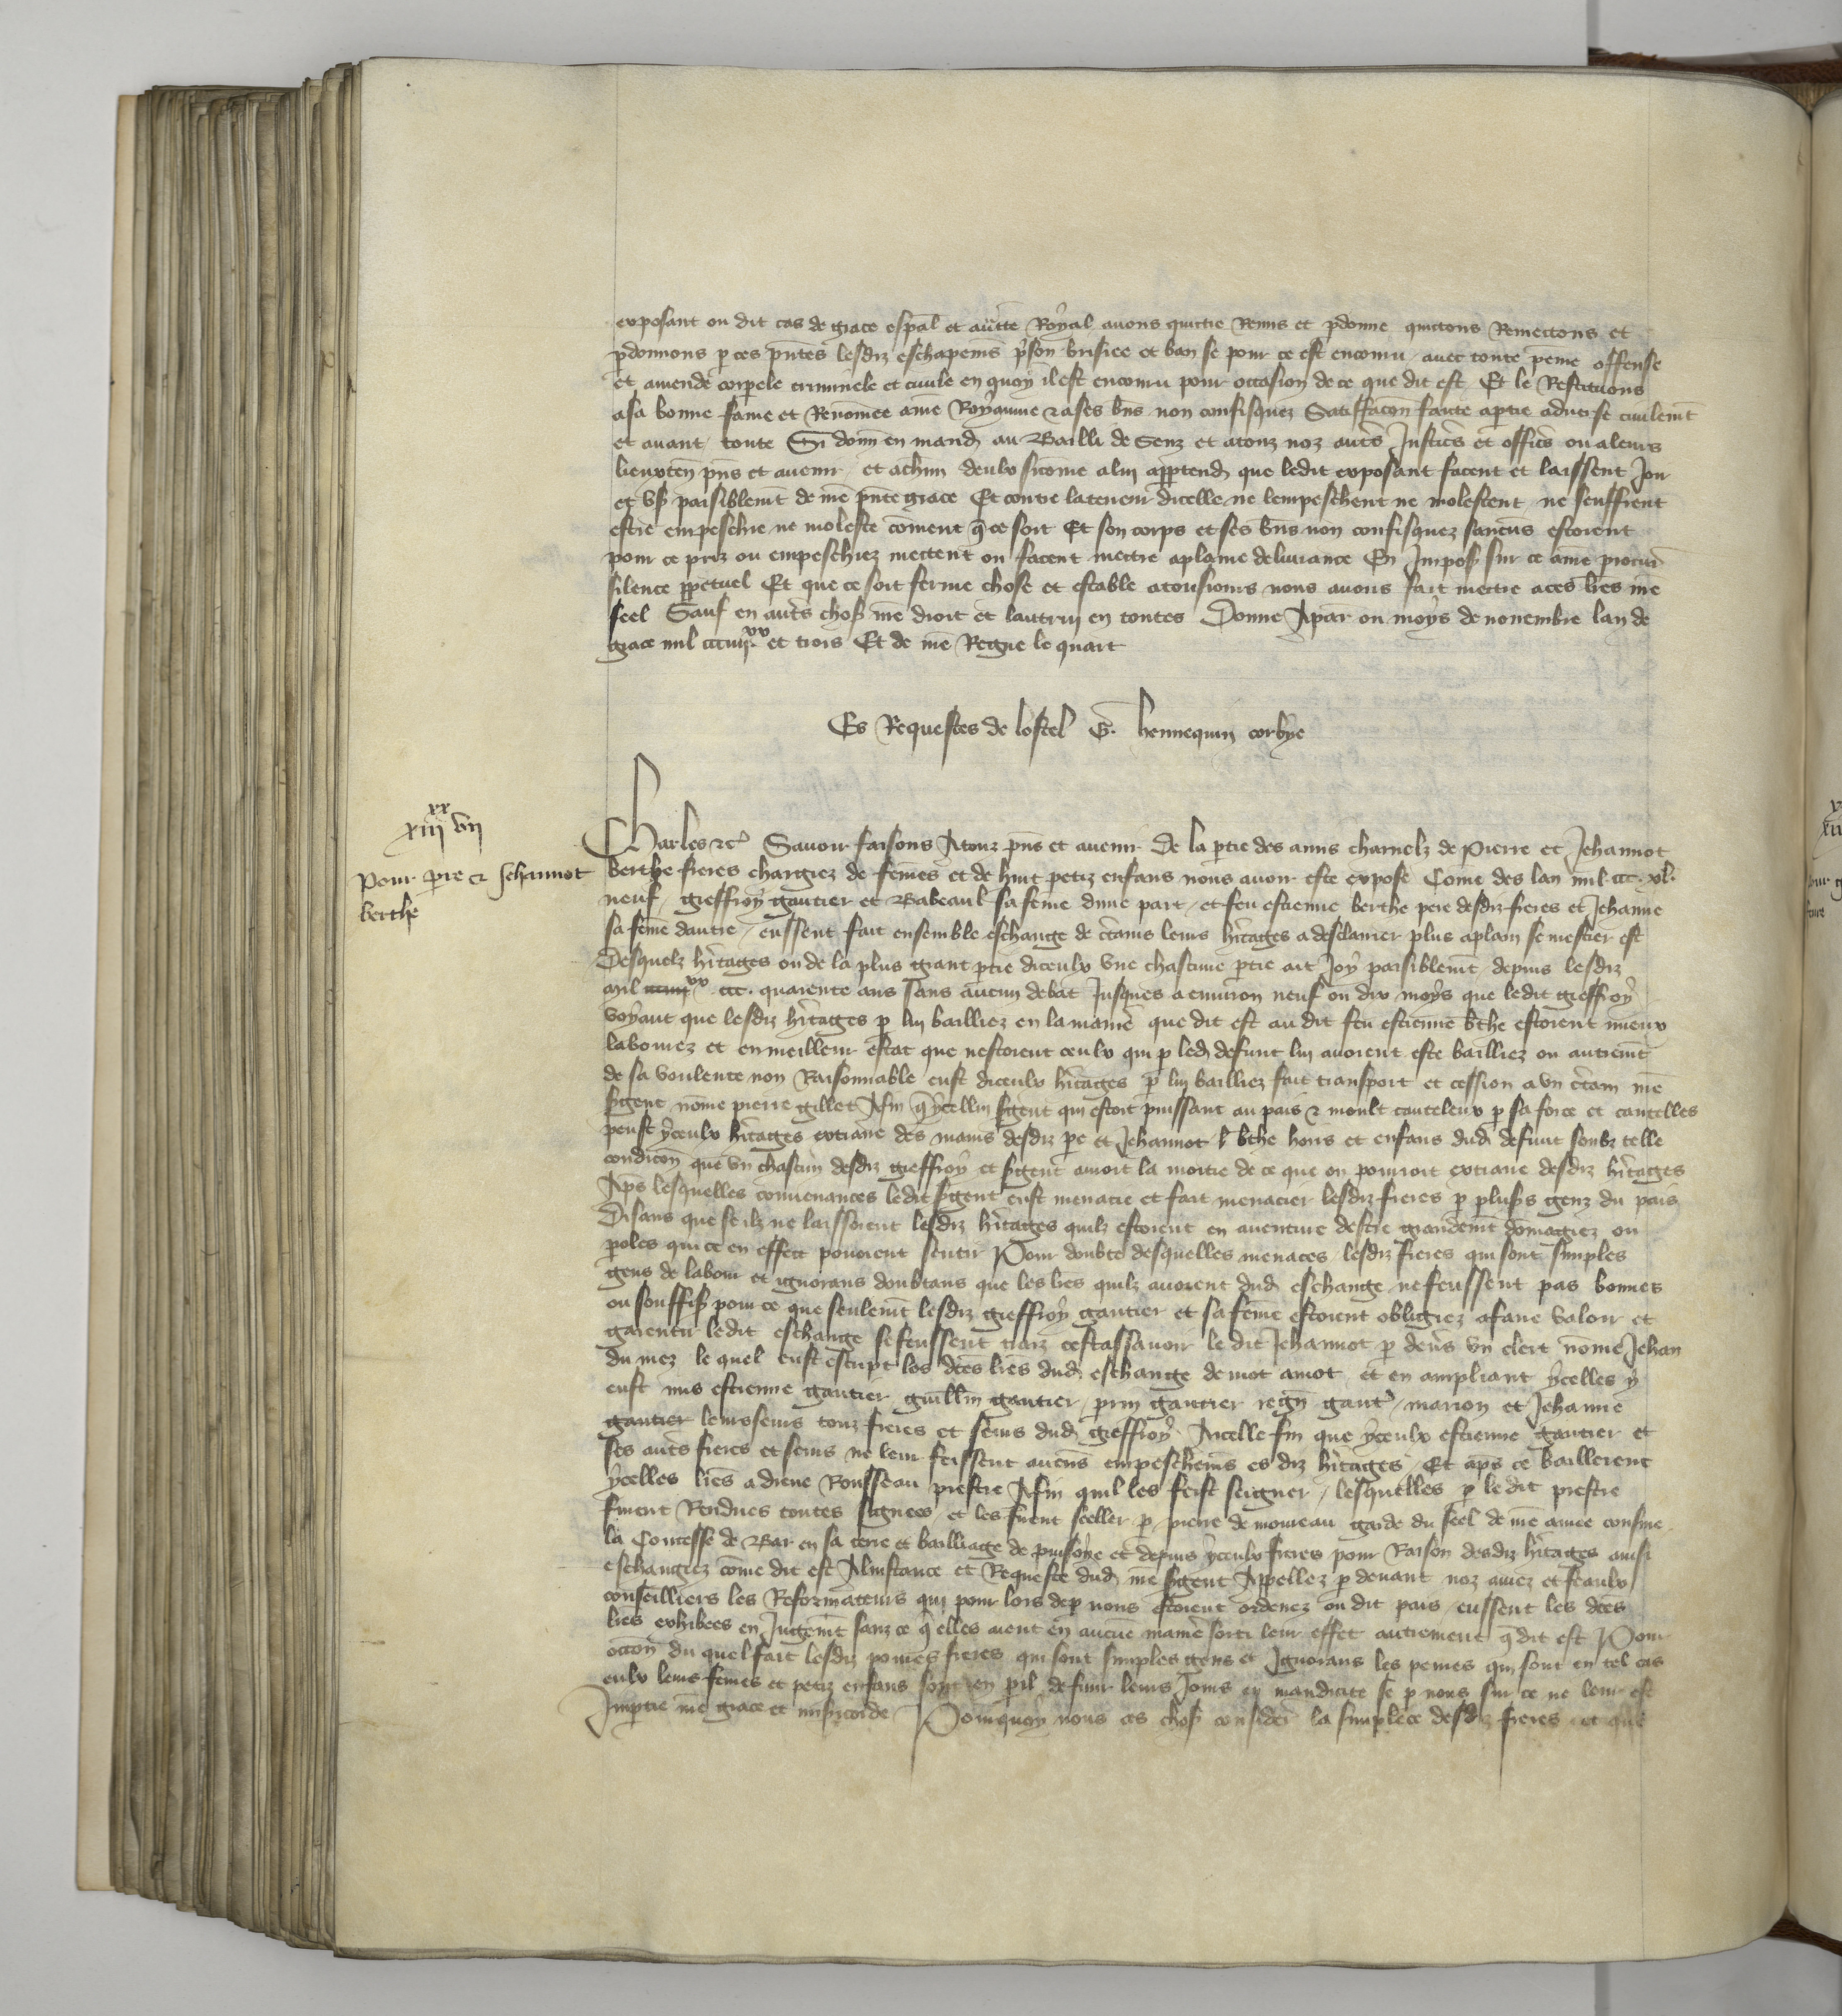 exposant ou dit cas de grace esp̄al et auct̄te Royal auons quictie Remis et p̄donne quictons Remettons et
p̄donnons p ces p̄ntes lesdiz eschapem̄s p̄son brisiee et ban se pour ce est encouru auec toute peine offense
et amende corporele criminele et ciuile en quoy il est encouru pour occasion de ce que dit est Et le Restituons
a sa bonne fame et Renōmee a n̄re Royaume & a ses bn̄s non confisquez Satisfac̄on faicte a p̄tie aduerse ciuilem̄t
et auant toute Si donn̄ en mand̄ au Bailli de Senz et a touz noz aut̄s Justic̄s et offic̄s ou a leurs
lieuxten̄ p̄ns et auenir et a ch̄un deulx si cōme a lui app̄tend̄ que ledit exposant facent et laissent Joir
et vs̄ paisiblem̄t de n̄re p̄nte grace Et contre la teneur dicelle ne lempeschent ne molestent ne seuffrent
estre empeschie ne moleste cōment q̄ ce soit Et son corps et ses bn̄s non confisquez saucūs estoient
pour ce priz ou empeschiez mettent ou facent mettre a plaine deliurance En Impos̄ sur ce a n̄re procur̄
silence pp̄etuel Et que ce soit ferme chose et estable a tousiours nous auons fait mettre a ces lr̄es n̄re
seel Sauf en aut̄s chos̄ n̄re droit et lautruy en toutes Donne A par̄ ou moys de nouembre lan de
grace mil ccc iiij.xx et trois Et de n̄re Regne le quart
Es Requestes de lostel G. hennequin corbye
xx
xiii vii
Pour p̄re & Jehannot
berthe
Charles &c̄ Sauoir faisons A touz p̄ns et auenir De la p̄tie des amis charnelz de Pierre et Jehannot
berthe freres chargiez de fem̄es et de huit petiz enfans nous auoir este expose Cōme des lan mil.ccc.xl.
neuf, gieffroy gautier et Babeaul sa fēme dune part, et feu estienne berthe pere desdiz freres et Jehanne
sa fēme dautre, eussent fait ensemble eschange de c̄tains leurs h̄itages a desclairier plus a plain se mestier est
Desquelz h̄itages ou de la plus grant p̄tie diceulx vne chascune p̄tie ait Joy paisiblem̄t depuis lesdiz
mil xx ccc. quarente ans sans aucun debat Jusques a enuiron neuf ou dix moys que ledit gieffroy
voyant que lesdiz h̄itages p lui bailliez en la manie᷑ que dit est au dit feu estienne b̄the estoient mieux
labourez et en meilleur estat que nestoient ceulx qui p led̄ defunt lui auoient este bailliez ou autrem̄t
de sa voulente non Raisonnable eust diceulx h̄itages p lui bailliez fait transport et cession a vn c̄tain n̄re
s̄gent nōme pierre gillet Afin q̄ ycellui s̄gent qui estoit puissant au pais & moult cauteleux p sa force et cautelles
peust yceulx h̄itages extraire des mains desdiz p̄re et Jehannot b̄the hoirs et enfans dud̄ defunt soubz telle
condic̄on que vn chascun desdiz gieffroy et s̄gent auroit la moitie de ce que on pourroit extraire desdiz h̄itages
Ap̄s lesquelles conuenances ledit s̄gent eust menacie et fait menacier lesdiz freres p plus̄s genz du pais
Disans que se ilz ne laissoient lesdiz h̄itages quilz estoient en auenture destre grandem̄t dōmagiez ou
poles qui ce en effect pouoient sentir Pour doubte desquelles menaces lesdiz freres qui sont simples
gens de labour et ignorans doubtans que les lr̄es quilz auoient dud̄ eschange ne feussent pas bonnes
ou souffis̄ pour ce que seulem̄t lesdiz gieffroy gautier et sa fēme estoient obligiez a faire valoir et
garentir ledit eschange se feussent traiz cestassauoir le dit Jehannot p deūs vn clerc nōme Jehan
du mez le quel eust escript les dc̄es lr̄es dud̄ eschange de mot a mot et en ampliant ycelles y
eust mis estienne gautier guill̄in gautier, p̄rin gautier regn̄ gaut̄, marion et Jehanne
gautier leurs seurs touz freres et seurs dud̄ gieffroy. A icelle fin que yceulx estienne gautier et
ses aut̄s freres et seurs ne leur feissent aucūs empeschem̄s es diz h̄itages Et ap̄s ce baillerent
ycelles lr̄es a diene Rousseau prestre Afin quil les feist seigner, lesquelles p le dit prestre
furent Rendues toutes signees et les firent sceller p pierre de moireau garde du seel de n̄re amee cousine
la Contesse de Bar en sa terre et bailliage de puisoye et depuis yceulx freres pour Raison desdiz h̄itages ainsi
eschangiez cōme dit est A linstance et Requeste dud̄ n̄re s̄gent Appellez p deuant noz amez et feaulx
conseilliers les Reformateurs qui pour lors de p nous estoient ordenez ou dit pais, eussent les dc̄es
lr̄es exhibees en Jugem̄t sanz ce q̄ elles aient en aucune manie᷑ sorti leur effet autrement q̄ dit est Pour
occ̄on du quel fait lesdiz poures freres qui sont simples gens et Ignorans les peines qui sont en tel cas
eulx leurs fēmes et petiz enfans sont en p̄il de finir leurs Jours en mandicite se p nous sur ce ne leur est
Imp̄tie n̄re grace et mis̄icorde Pourquoy nous ces chos̄ consider̄ la simplece desdiz freres et que